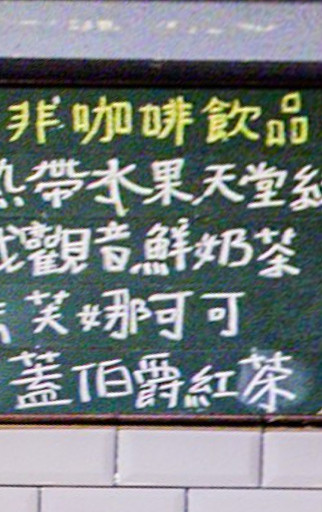 非咖啡飲品
熱帶水果天堂紅
鐵觀音鮮奶茶
芙娜可可
蓋伯爵紅茶